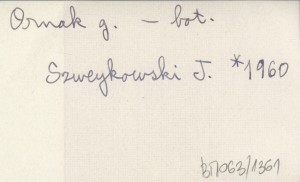 Ornak g. – bot.
Szweykowski J. *1960
BTN063/1361